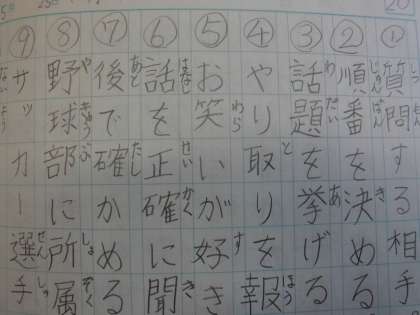 ①質問する相手
②順番を決める
③話題を挙げる
④やり取りを報
⑤お笑いが好き
⑥話を正確に聞
⑦後で確かめる
⑧野球部に所属
⑨サッカー選手